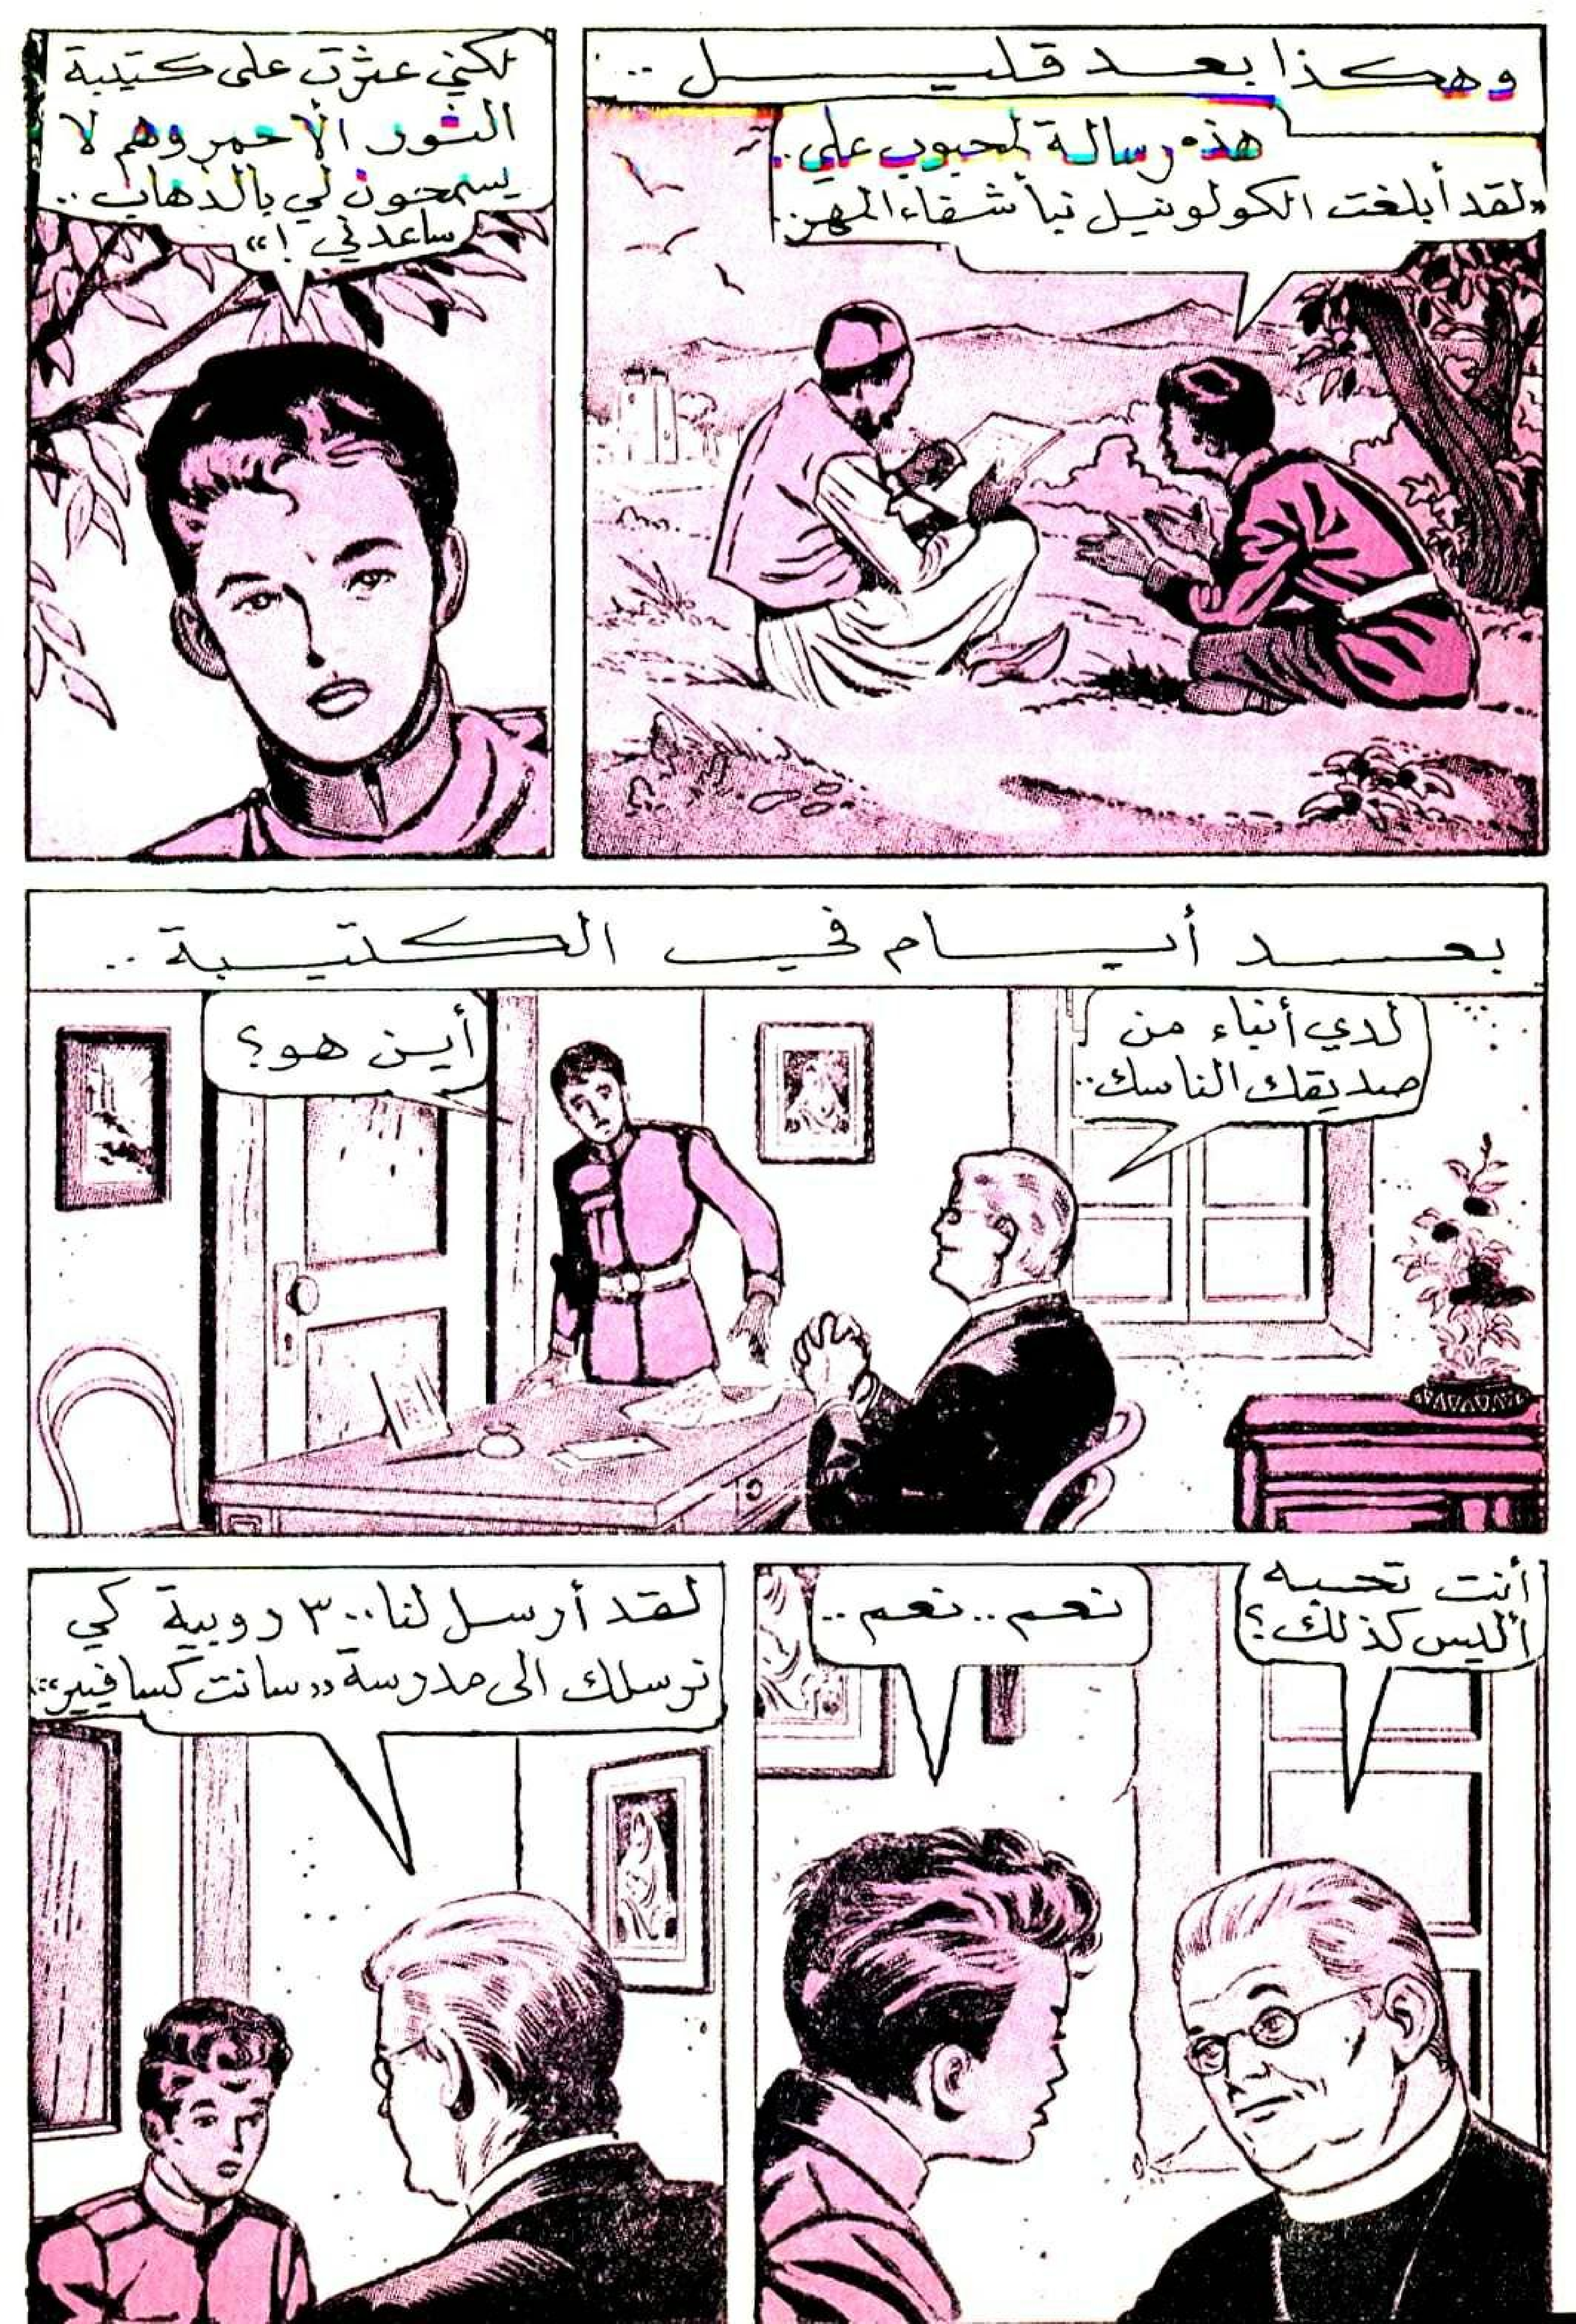 وهكذا بعد قليل ..
هذه رسالة لمحبوب علي..
«لقد أبلغت الكولونيل نبأ شفاء المهر..
لكني عثرت على كتيبة
الثور الأحمر وهم لا
يسمحون لي بالذهاب ..
ساعدني !»
بعد أيام في الكتيبة ..
لدي أنباء من
صديقك الناسك..
أين هو؟
أنت تحبه
أليس كذلك؟
نعم .. نعم ..
لقد أرسل لنا ٣٠٠ روبية كي
نرسلك الى مدرسة «سانت كسافيير»..